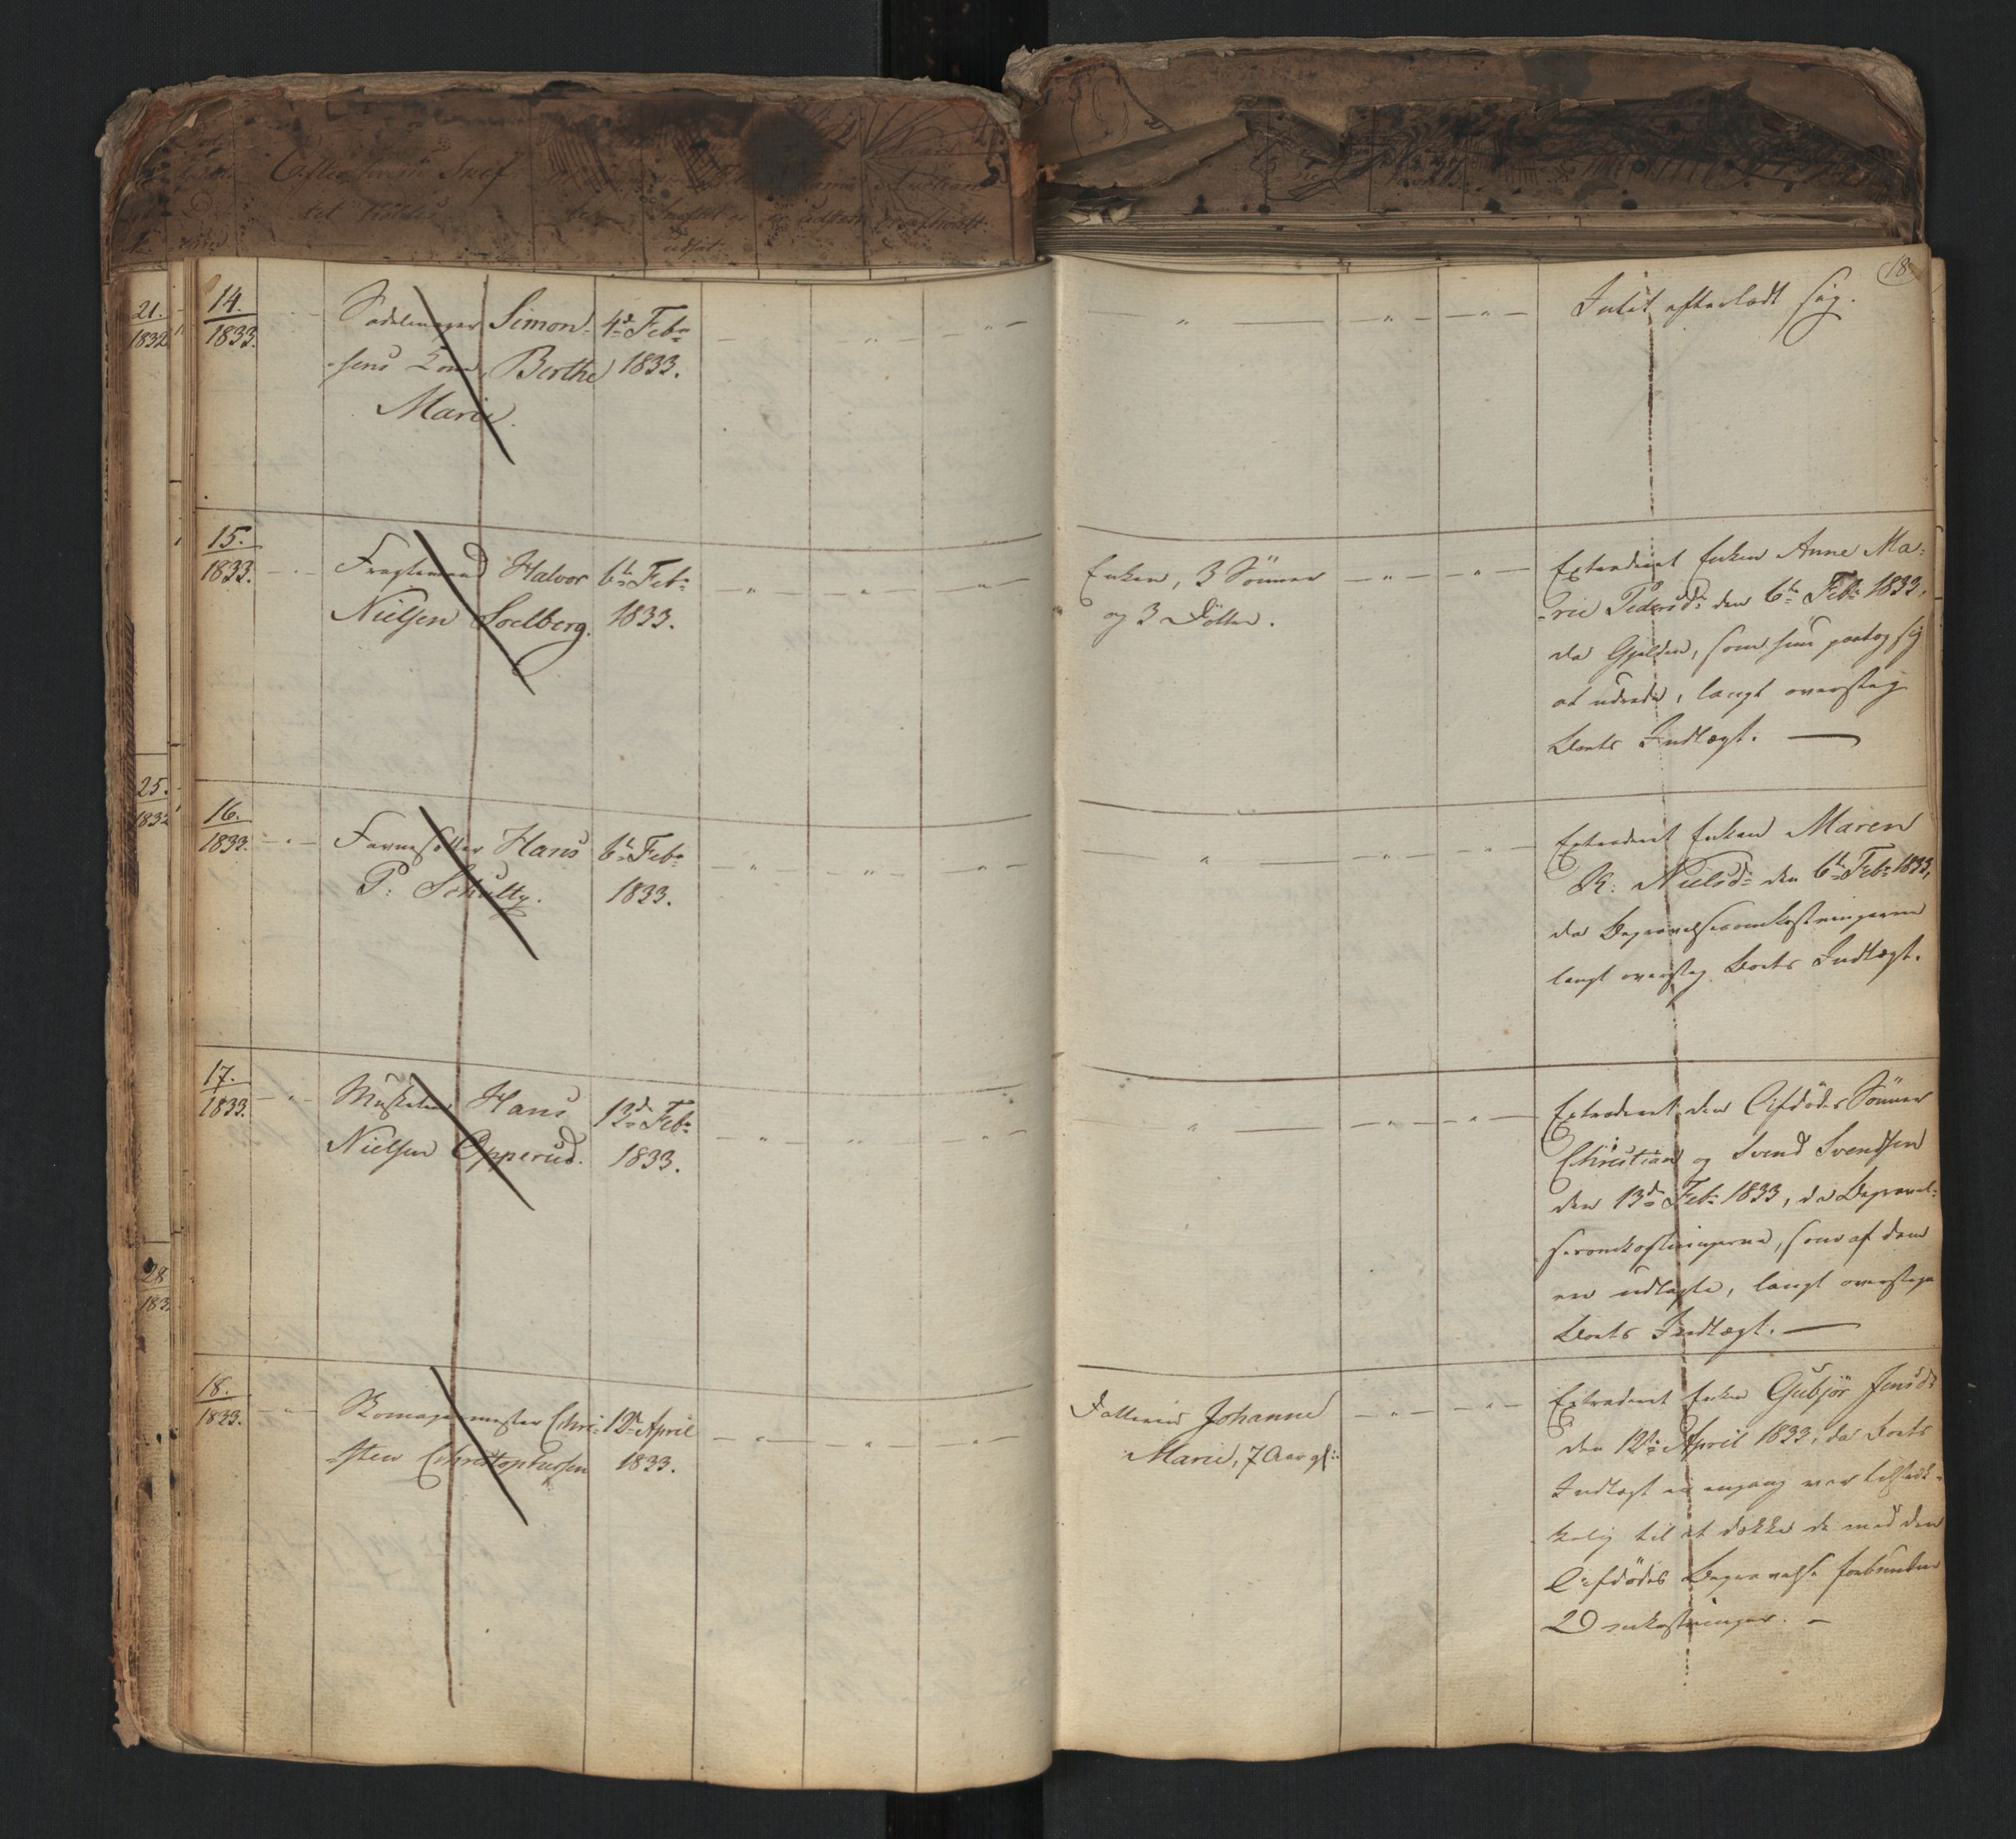 18
21.
1832
14.
1833.
Sadelmager Simon-
sens Kone, Berthe
Marie.
4de Feb:
1833.
Intet efterladt sig.
15.
1833.
Fragtemand Halvor
Nielsen Soelberg.
6te Feb:
1833.
Enken, 3 Sønner
og 3 Døttre.
Extraderet Enken Anne Ma-
rie Pedersd: den 6te Feb: 1833,
da Gjælden, som hun paatog sig
at udrede, langt oversteg
Boets Indtægt.
25.
1832
16.
1833.
Favnesetter Hans
P: Schultz.
6te Feb:
1833.
Extraderet Enken Maren
K: Nielsd: den 6te Feb: 1833,
da Begravelsesomkostningerne
langt oversteg Boets Indtægt.
17.
1833.
Hans
Nielsen Opperud.
12de Feb:
1833.
Extraderet den Afdødes Sønner
Christian og Svend Svendsen
den 13de Feb: 1833, da Begravel-
sesomkostningerne, som af dem
ere udlagte, langt overstege
Boets Indtægt.
28
183
18.
1833.
Skomagermester Chri-
sten Christophersen
12te April
1833.
Datteren Johanne
Marie, 7 Aar gl:
Extraderet Enken Gubjør Jensd:
den 12te April 1833, da Boets
Indtægt ei engang var tilstræk-
kelig til at dække de med den
Afdødes Begravelse forbundne
Omkostninger.